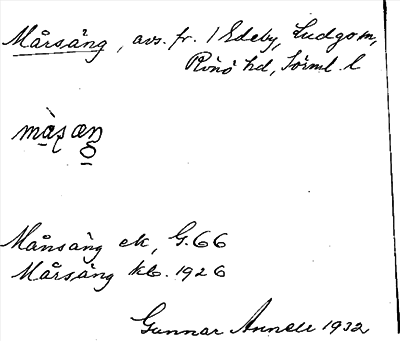 Mårsäng, avs. fr. 1 Edeby, Ludgo sn,
Rönö hd, Sörml. l
Månsäng ek, G.66
Mårsäng kb. 1926
Gunnar Annell 1932